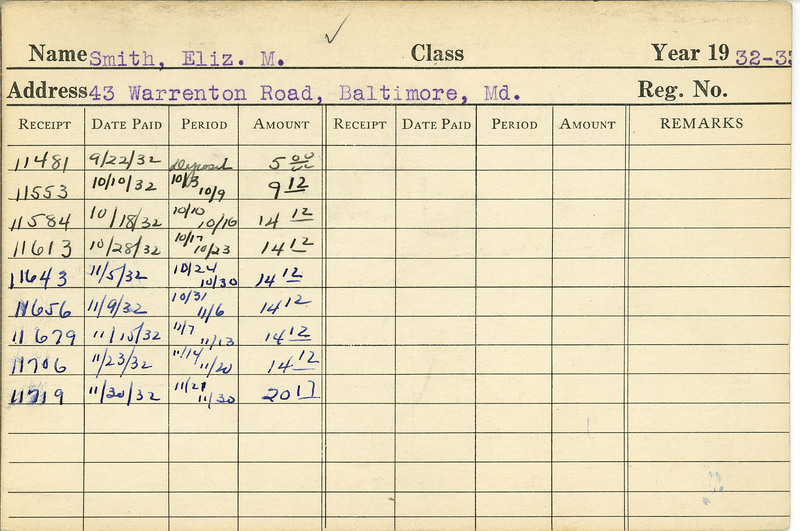 Name Smith, Eliz. M. Class Year 19 32-33
Address 43 Warrenton Road, Baltimore, Md. Reg. No.
RECEIPT DATE PAID PERIOD AMOUNT RECEIPT DATE PAID PERIOD AMOUNT REMARKS
11481 9/22/32 Deposit 5 00
11553 10/10/32 10/3 10/9 9 12
11584 10/18/32 10/10 10/16 14 12
11613 10/28/32 10/17 10/23 14 12
11643 11/5/32 10/24 10/30 14 12
11656 11/9/32 10/31 11/6 14 12
11679 11/15/32 11/7 11/13 14 12
11706 11/23/32 11/14 11/20 14 12
11719 11/30/32 11/21 11/30 20 17